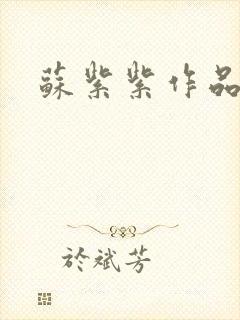 蘇紫紫作品
於斌芳